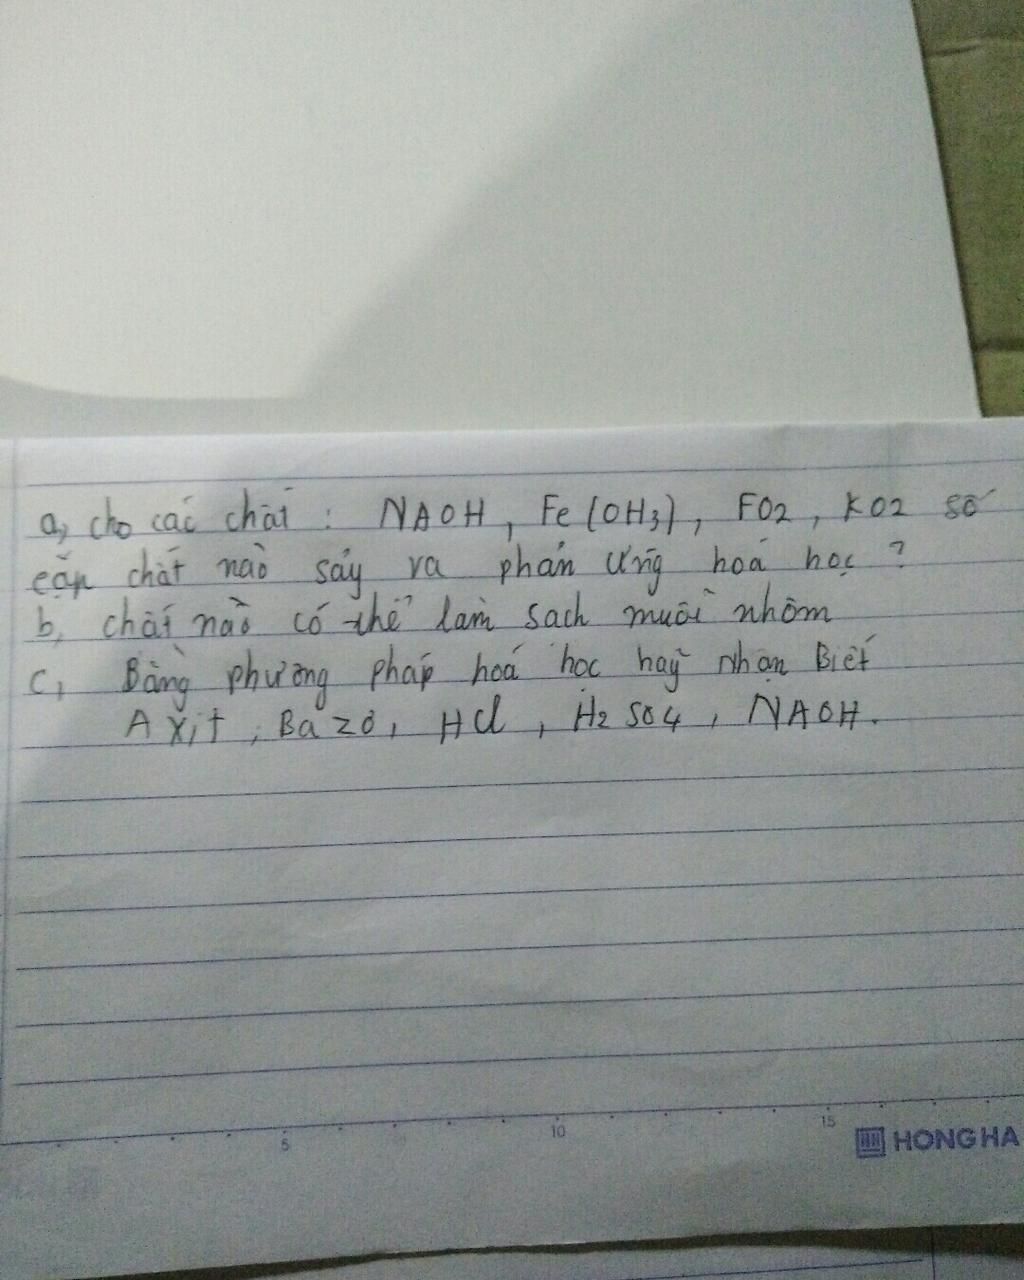 a, cho các chất : NAOH, Fe(OH3), FO2, KO2 số
cặp chất nào sảy ra phản ứng hoá học ?
b, chất nào có thể làm sạch muối nhôm
c, Bằng phương pháp hoá học hãy nhận Biết
AXit, Bazơ, HCl, H2SO4, NAOH.
5 10 15
HONG HA